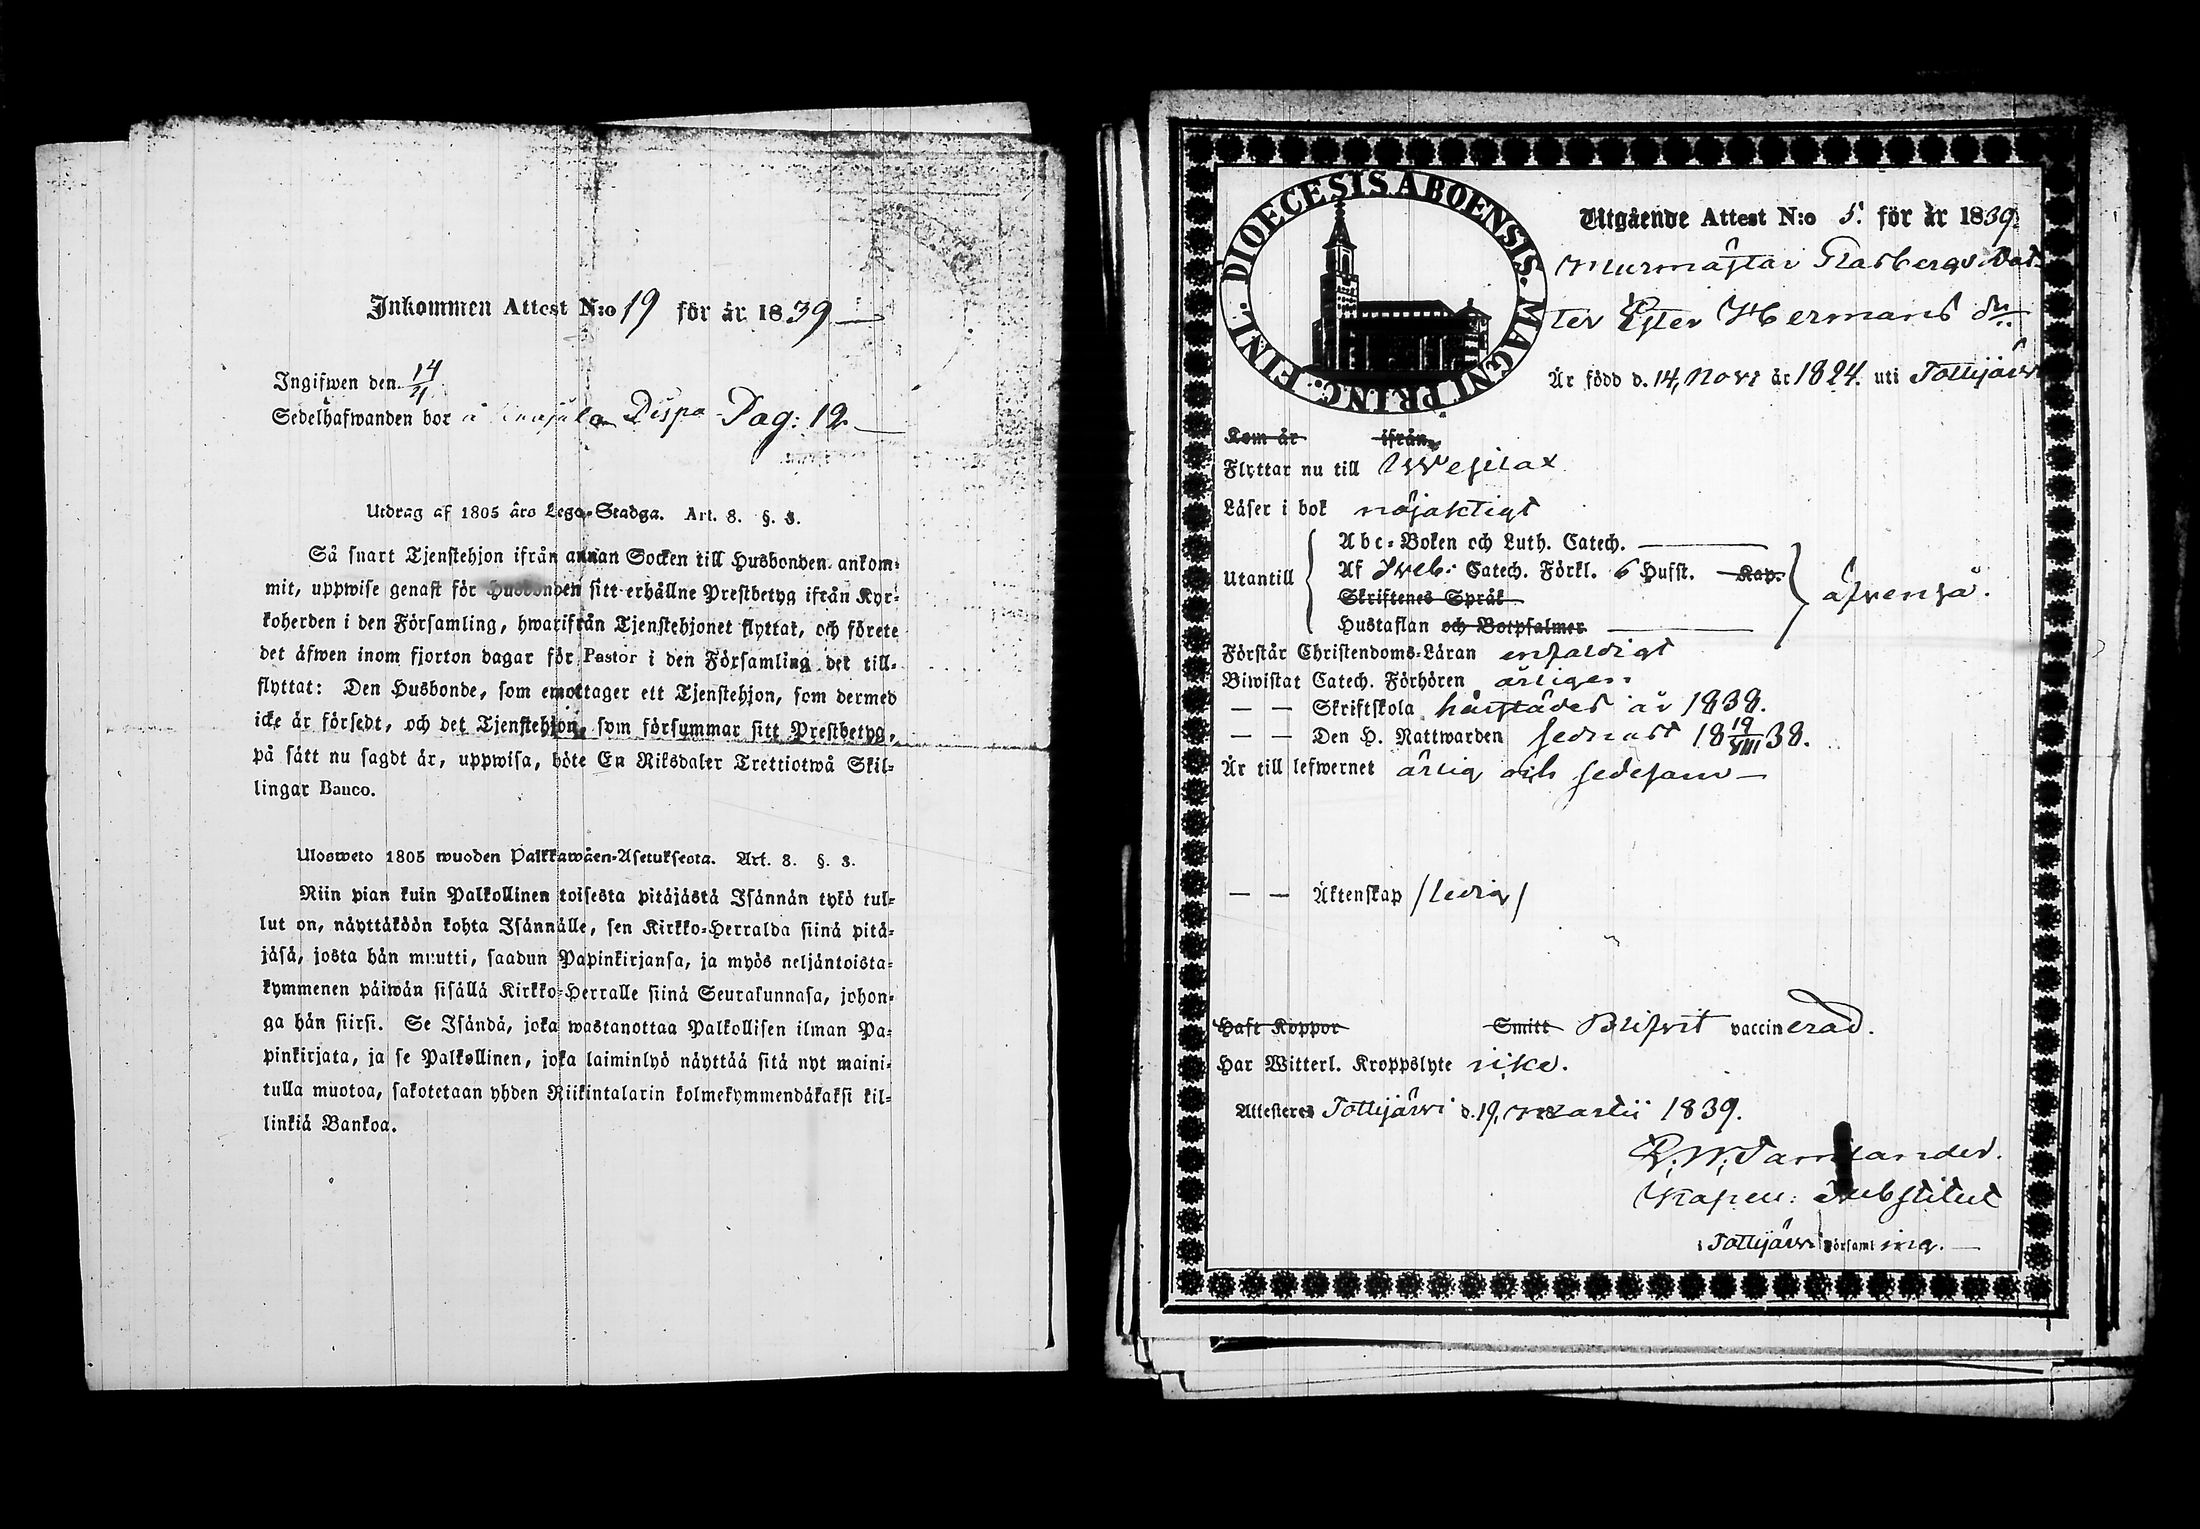 Inkommen Attest N:o 19 för år 1839
Ingifwen den 14/4
Sedelhafwanden bor å Dispo Pag: 12
Utdrag af 1805 års Lego-Stadga. Art. 8. §. 3.
Så snart Tjenstehjon ifrån annan Socken till Husbonden ankom-
mit, uppwise genast för Husbonden sitt erhållne Prestbetyg ifrån Kyr-
koherden i den Församling, hwarifrån Tjenstehjonet flyttat, och förete
det äfwen inom fjorton dagar för Pastor i den Församling det till-
flyttat: Den Husbonde, som emottager ett Tjenstehjon, som dermed
icke är försedt, och det Tjenstehjon, som försummar sitt Prestbetyg,
på sätt nu sagdt är, uppwisa, böte En Riksdaler Trettiotwå Skil-
lingar Banco.
Ulosweto 1805 wuoden Palkkawäen-Asetuksesta. Art. 8. §. 3.
Niin pian kuin Palkollinen toisesta pitäjästä Isännän tykö tul-
lut on, näyttäköön kohta Isännälle, sen Kirkko-Herralda siinä pitä-
jäsä, josta hän muutti, saadun Papinkirjansa, ja myös neljäntoista-
kymmenen päiwän sisällä Kirkko-Herralle siinä Seurakunnasa, johon-
ga hän siirsi. Se Isändä, joka wastanottaa Palkollisen ilman Pa-
pinkirjata, ja se Palkollinen, joka laiminlyö näyttää sitä nyt maini-
tulla muotoa, sakotetaan yhden Riikintalarin kolmekymmendäkaksi kil-
linkiä Bankoa.
DIOECESIS ABOENSIS. MAGNI PRINC. FINL.
Utgående Attest N:o 5. för år 1839.
Murmästar Flasbergs Dot-
ter Ester Hermans dr
Är född d. 14, Nov: år 1824. uti Tottijärvi
Kom år ifrån
Flyttar nu till Wesilax
Läser i bok nöjaktigt
Utantill
Abc-Boken och Luth. Catech.
Af Sveb: Catech. Förkl. 6 Hufst. Kap.
Skriftenes Språk
Hustaflan och Botpsalmer
äfvenså.
Förstår Christendoms-Läran enfaldigt
Biwistat Catech. Förhören årligen
— — Skriftskola härstädes år 1838.
— — Den H. Nattwarden sednast 18 19/VIII 38.
Är till lefwernet ärlig och sedesam
— — Äktenskap /ledig/
Haft Koppor Smitt Blifvit vaccinerad.
Har Witterl. Kroppslyte icke.
Attesteres Tottijärvi d. 19, Martii 1839.
Kapell: Substitut
i Tottijärvi Församling.